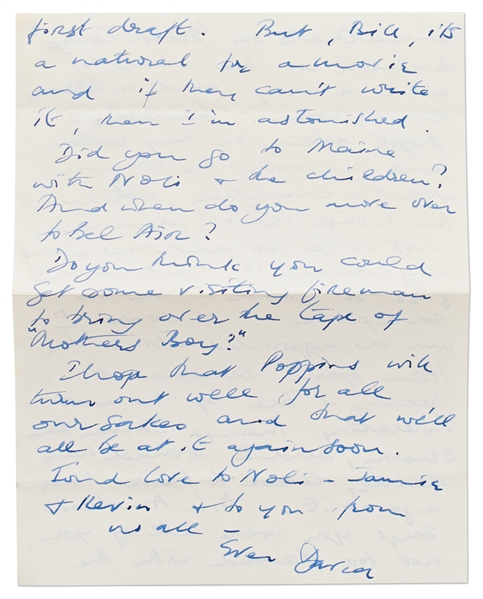 first draft. But, Bill, its
a natural for a movie
and if they can't write
it, then I'm astonished.
Did you go to Maine
with Noli & the children?
And when do you move over
to Bel Air?
Do you think you could
get some visiting fireman
to bring over the tape of
"Mothers Boy?"
I hope that Poppins will
turn out well for all
our sakes and that we'll
all be at it again soon.
Fond love to Noli - Jamie
& Kevin & to you from
us all -
Ever